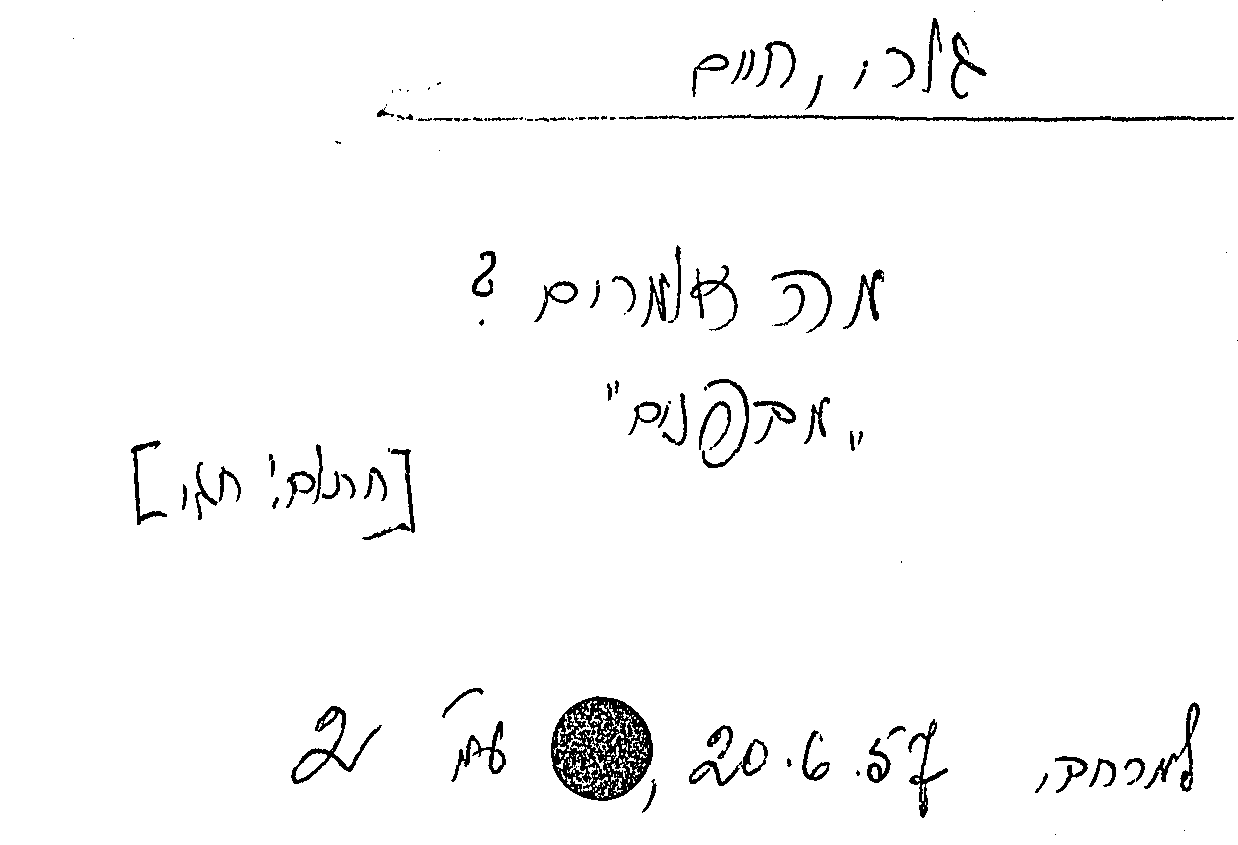 גורי, חיים
מה אומרים ?
"מבפנים"
[חתום: חגי]
למרחב, 20.6.57, עמ' 2